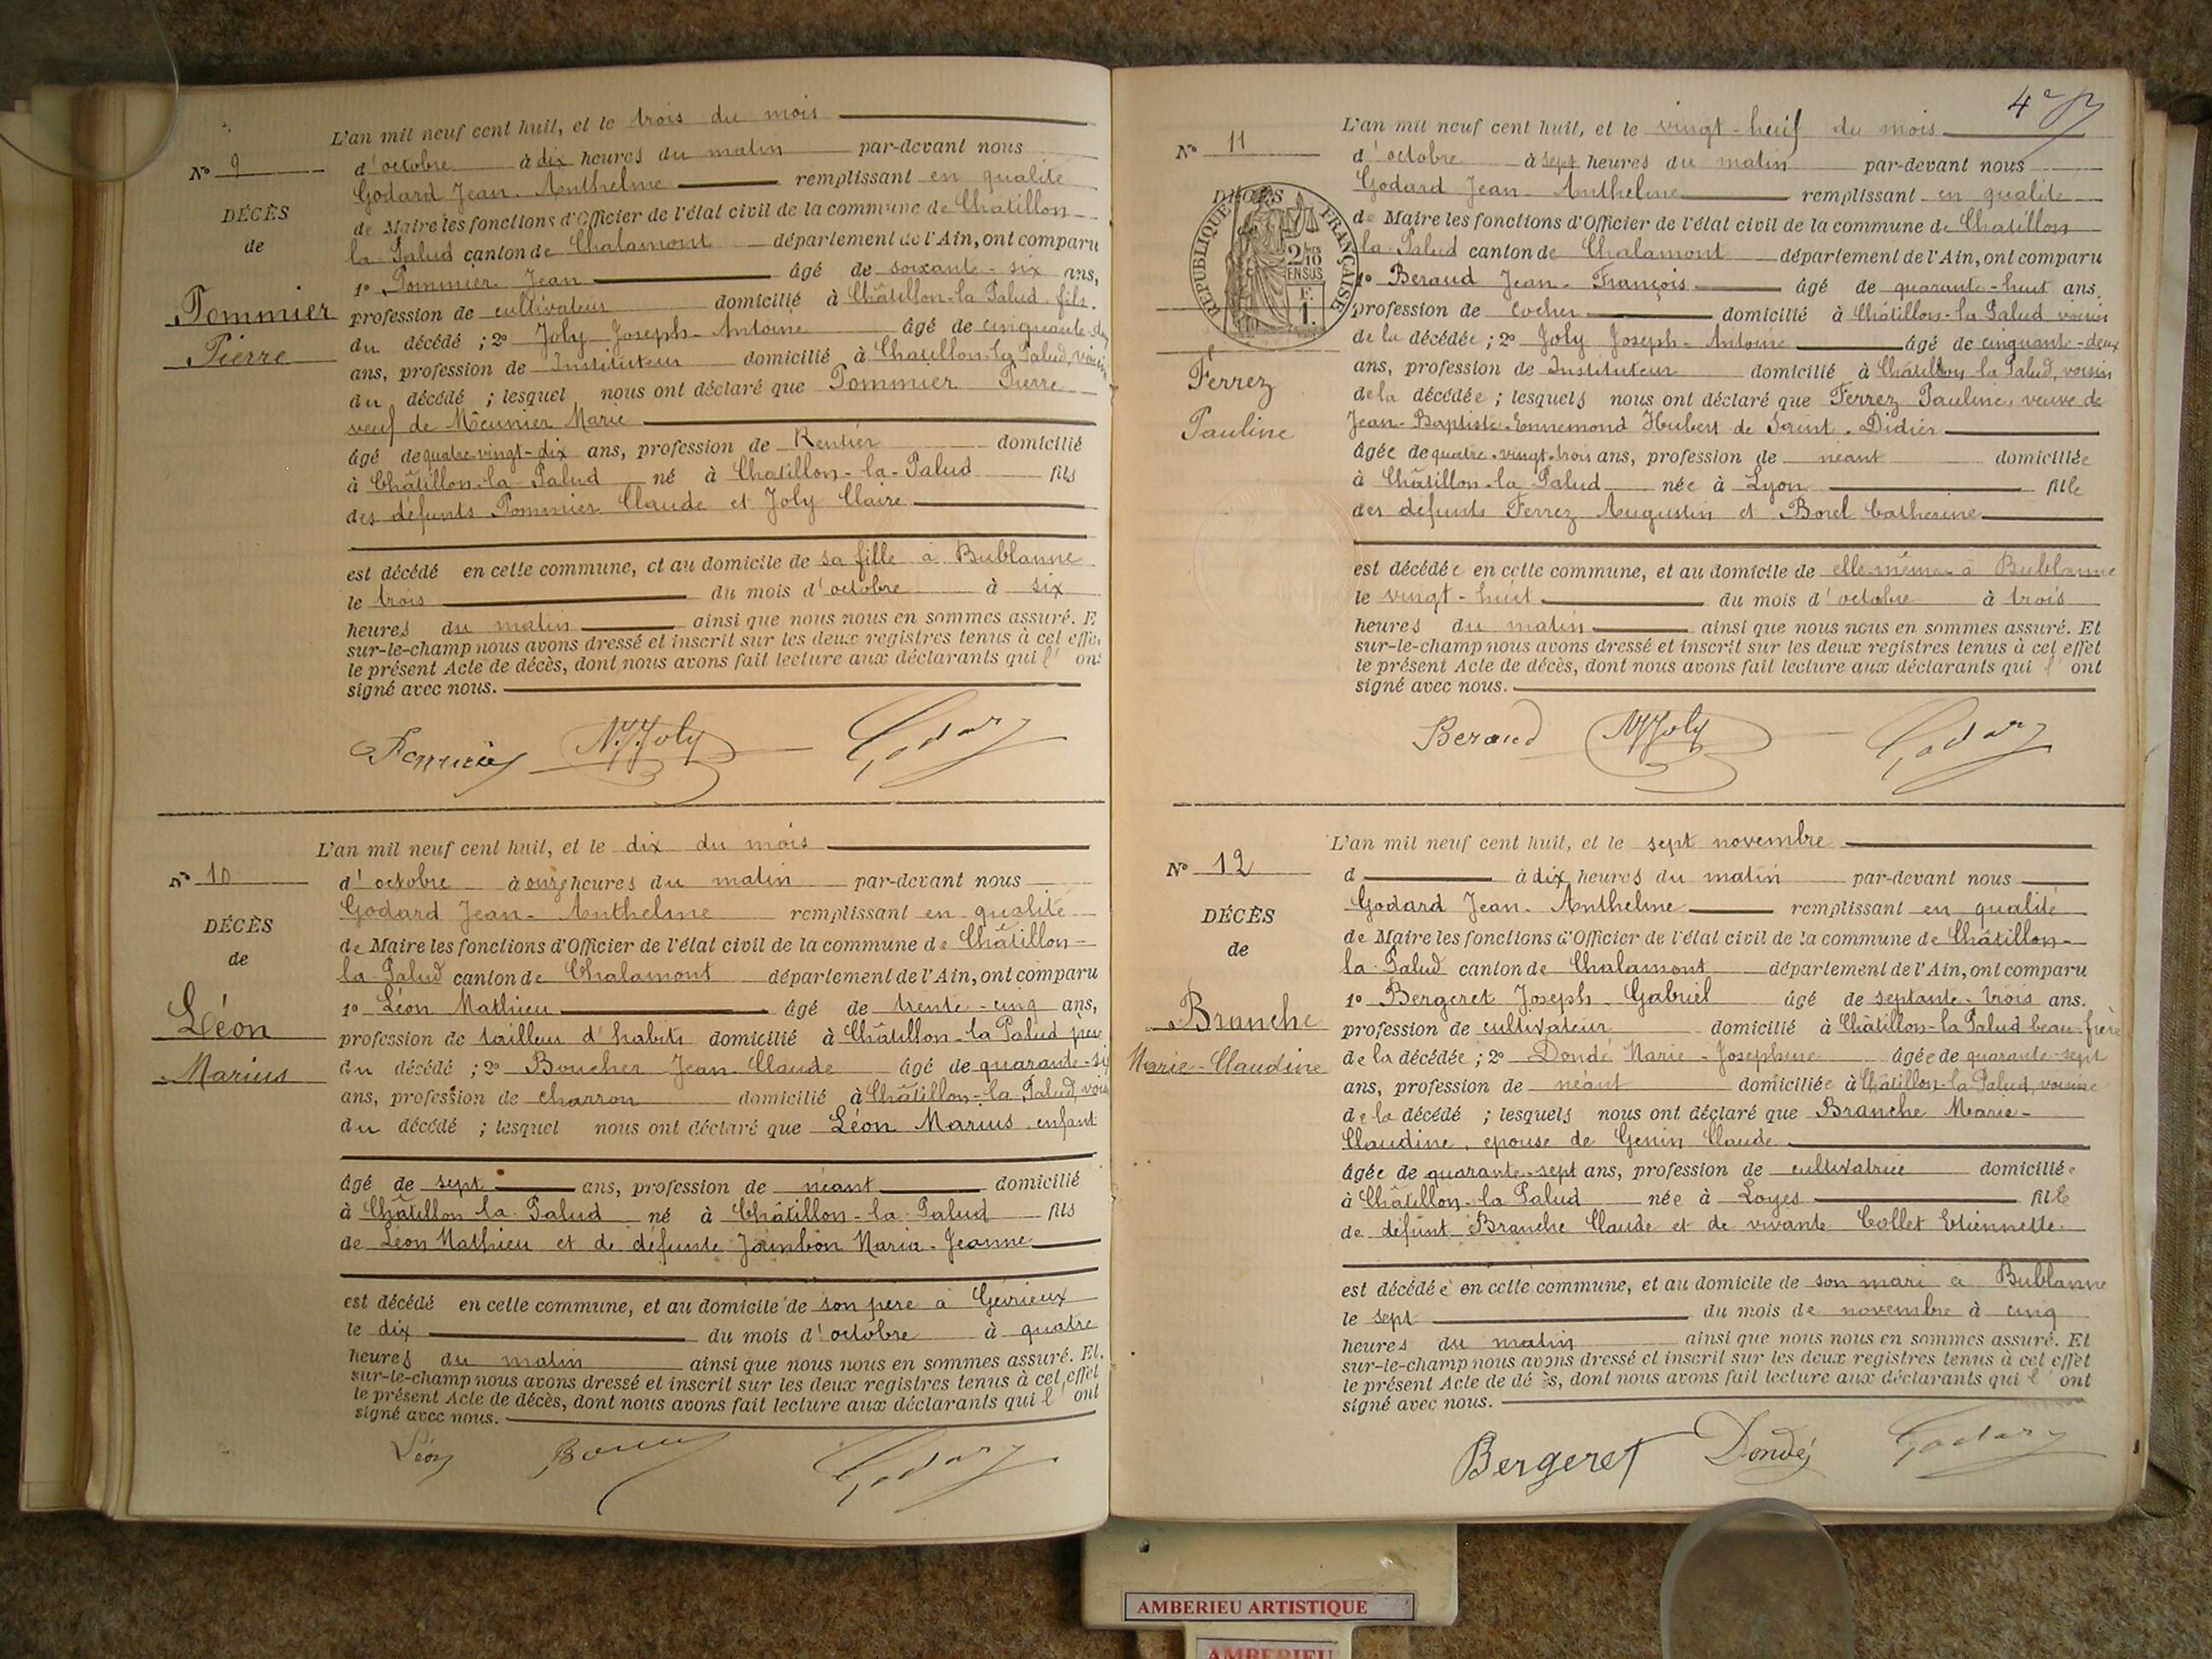 L'an mil neuf cent huit, et le trois du mois
N° 9
d'octobre à dix heures du matin par-devant nous
Godard Jean-Anthelme remplissant en qualité
DÉCÈS
de
de Maire les fonctions d'Officier de l'état civil de la commune de Chatillon-
la Palud canton de Chalamont département de l'Ain, ont comparu
1° Pommier Jean âgé de soixante-six ans,
Pommier
Pierre
profession de cultivateur domicilié à Châtillon-la Palud, fils
du décédé ; 2° Joly Joseph-Antoine âgé de cinquante-
ans, profession de Instituteur domicilié à Chatillon-la Palud, voisin
du décédé ; lesquel nous ont déclaré que Pommier Pierre
veuf de Meunier Marie
âgé de quatre-vingt-dix ans, profession de Rentier domicilié
à Châtillon-la Palud né à Chatillon-la-Palud fils
des défunts Pommier Claude et Joly Claire
est décédé en cette commune, et au domicile de sa fille à Bublanne
le trois du mois d'octobre à six
heures du matin ainsi que nous nous en sommes assuré. E
sur-le-champ nous avons dressé et inscrit sur les deux registres tenus à cet effe
le présent Acte de décès, dont nous avons fait lecture aux déclarants qui l' ont
signé avec nous.
Pommier Joly Godard
L'an mil neuf cent huit, et le dix du mois
N° 10
d'octobre à onze heures du matin par-devant nous
Godard Jean-Anthelme remplissant en qualité
DÉCÈS
de
de Maire les fonctions d'Officier de l'état civil de la commune de Châtillon-
la-Palud canton de Chalamont département de l'Ain, ont comparu
Léon
Marius
1° Léon Mathieu âgé de trente-cinq ans,
profession de tailleur d'habits domicilié à Châtillon-la Palud père
du décédé ; 2° Boucher Jean-Claude âgé de quarante-six
ans, profession de charron domicilié à Châtillon-la Palud, vois
du décédé ; lesquel nous ont déclaré que Léon Marius enfant
âgé de sept ans, profession de néant domicilié
à Châtillon la Palud né à Châtillon-la-Palud fils
de Léon Mathieu et de défunte Jambon Maria-Jeanne
est décédé en cette commune, et au domicile de son père à Gévrieux
le dix du mois d'octobre à quatre
heures du matin ainsi que nous nous en sommes assuré. Et
sur-le-champ nous avons dressé et inscrit sur les deux registres tenus à cet effet
le présent Acte de décès, dont nous avons fait lecture aux déclarants qui l' ont
signé avec nous.
Léon Godard
L'an mil neuf cent huit, et le vingt-huit du mois
N° 11
d'octobre à sept heures du matin par-devant nous
Godard Jean-Anthelme remplissant en qualité
DÉCÈS
RÉPUBLIQUE FRANÇAISE
EN SUS
de Maire les fonctions d'Officier de l'état civil de la commune de Chatillon
la-Palud canton de Chalamont département de l'Ain, ont comparu
1° Beraud Jean-François âgé de quarante-huit ans,
profession de Cocher domicilié à Châtillon-la Palud voisin
de la décédée ; 2° Joly Joseph-Antoine âgé de cinquant-deux
Ferrez
Pauline
ans, profession de Instituteur domicilié à Châtillon la Palud, voisin
de la décédée ; lesquels nous ont déclaré que Ferrez Pauline, veuve de
Jean-Baptiste-Ennemond Hubert de Saint-Didier
âgée de quatre-vingt-trois ans, profession de néant domiciliée
à Châtillon-la Palud née à Lyon fille
des défunts Ferrez Augustin et Borel Catherine
est décédée en cette commune, et au domicile de elle-même à Bublanne
le vingt-huit du mois d'octobre à trois
heures du matin ainsi que nous nous en sommes assuré. Et
sur-le-champ nous avons dressé et inscrit sur les deux registres tenus à cet effet
le présent Acte de décès, dont nous avons fait lecture aux déclarants qui l' ont
signé avec nous.
Beraud Joly Godard
L'an mil neuf cent huit, et le sept novembre
N° 12
d à dix heures du matin par-devant nous
Godard Jean-Anthelme remplissant en qualité
DÉCÈS
de
de Maire les fonctions d'Officier de l'état civil de la commune de Châtillon-
la-Palud canton de Chalamont département de l'Ain, ont comparu
1° Bergeret Joseph-Gabriel âgé de septante-trois ans.
Branche
Marie-Claudine
profession de cultivateur domicilié à Châtillon-la Palud beau-frère
de la décédée ; 2° Dondé Marie-Josephine âgée de quarante-sept
ans, profession de néant domiciliée à Châtillon-la Palud, voisine
de la décédé ; lesquels nous ont déclaré que Branche Marie-
Claudine, epouse de Genin Claude
âgée de quarante-sept ans, profession de cultivatrice domiciliée
à Châtillon-la Palud née à Loyes fille
de défunt Branche Claude et de vivante Collet Etiennette
est décédée en cette commune, et au domicile de son mari à Bublanne
le sept du mois de novembre à cinq
heures du matin ainsi que nous nous en sommes assuré. Et
sur-le-champ nous avons dressé et inscrit sur les deux registres tenus à cet effet
le présent Acte de dé ès, dont nous avons fait lecture aux déclarants qui l' ont
signé avec nous.
Bergeret Dondé Godard
AMBERIEU ARTISTIQUE
AMBERIEU